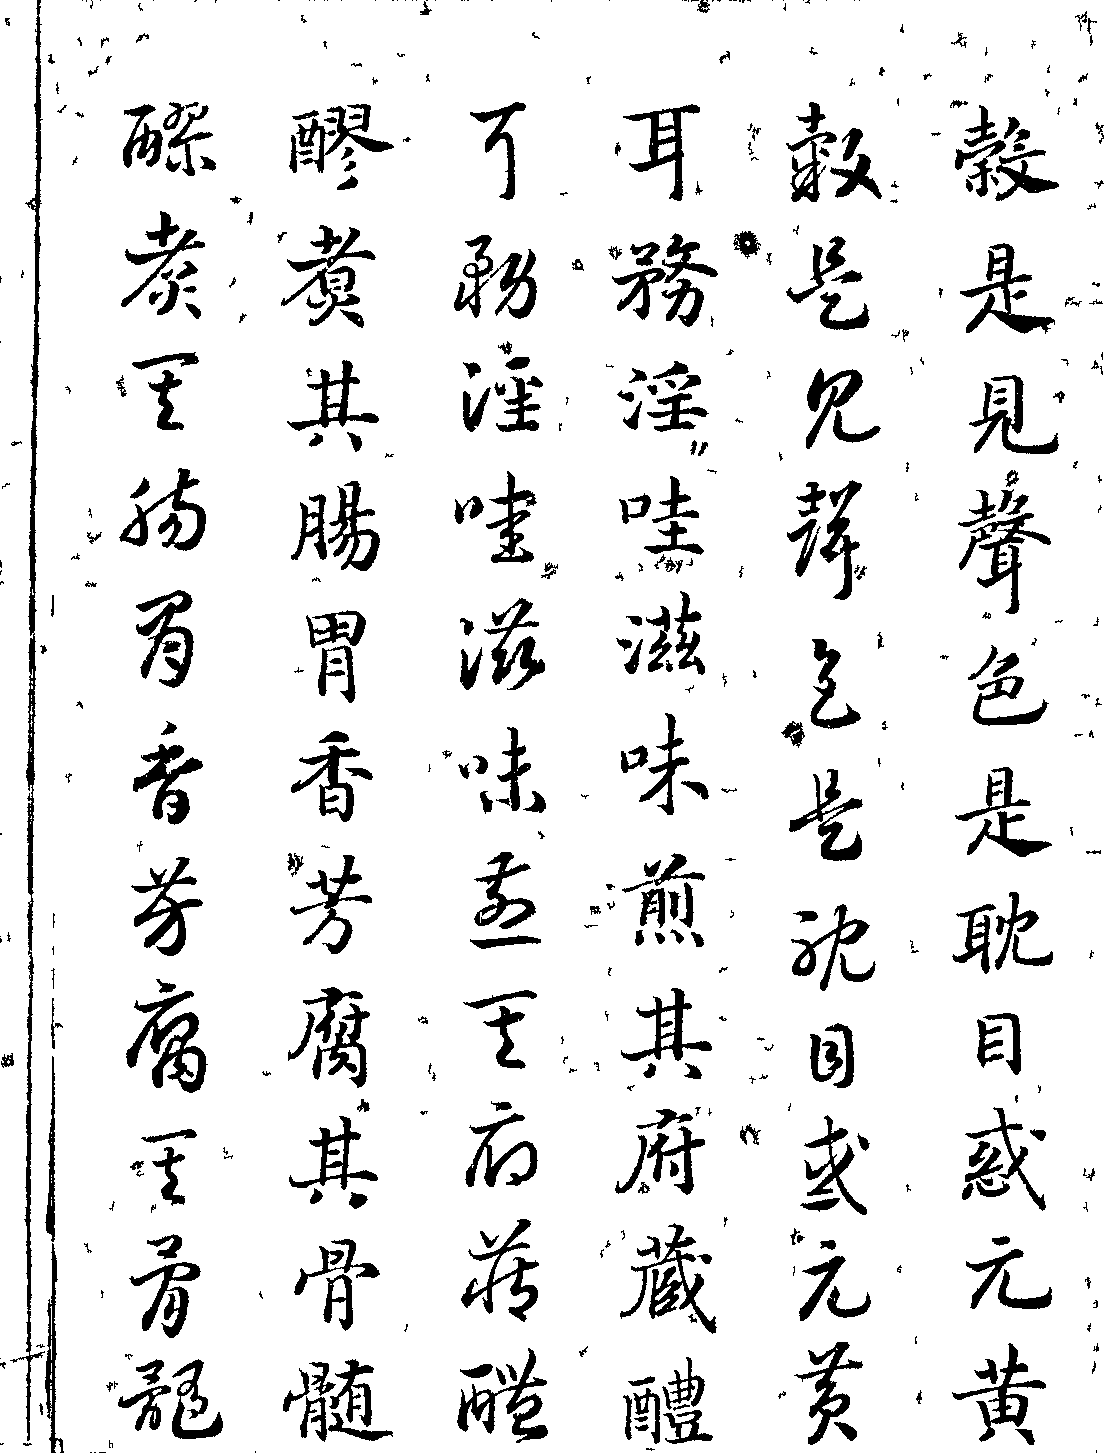 穀是見聲色是耽目惑元黄
穀是見聲色是耽目惑元黄
耳務淫哇滋味煎其府蔵醴
耳務淫哇滋味煎其府蔵醴
醪煑其腸胃香芳腐其骨髄
醪煑其腸胃香芳腐其骨髄